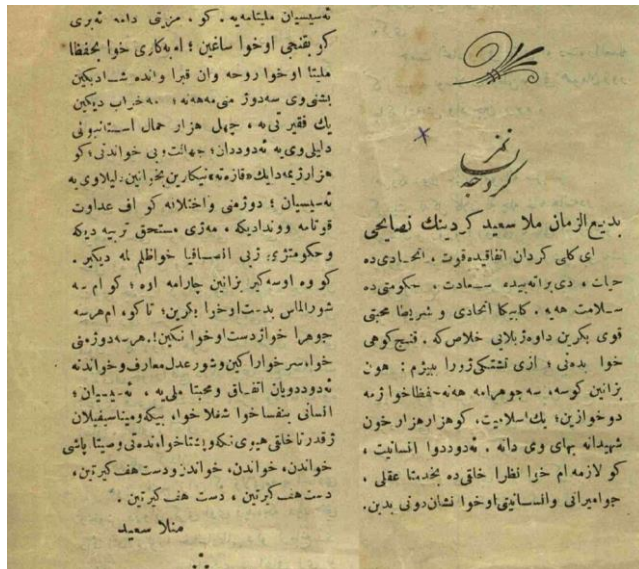 كردجه لسانمز
بديع الزمان ملا سعيد كردينك نصايحى
اى كلى كردان اتفاقيده قوت ، اتحادى ده
حيات ، دى براتييده سعادت ، حكومتى ده
سلامت هيه . كابيكا اتحادى و شريطا محبتى
قوى بكرين داوه ژبلايى خلاص كه . قنج كوهى
خوا بدنى ؛ ازى تشتكى ژورا بيژم : هون
بزانين كوسه ، سه جوهرا مه هنه حفظا خوا ژمه
دوخوازين ؛ يك اسلاميت ، كو هزار هزار خون
شهيدانه بهاى وى دانه . ئه دوددوا انسانيت ،
كو لازمه ام خوا نظرا خلقى ده بخدمتا عقلى ،
جواميرانى وانسانيتى اوخوا نشان دونى بدين .
ئه سيسيان مليتامه يه . كو . مزيتى دامه ئه برى
كو بقنجى اوخوا ساغين ؛ ام به كارى خوا بحفظا
مليتا اوخوا روحه وان قبرا وانده شاد بكين
پشتى وى سه دوژ منى مه هه نه ؛ مه خراب ديكين
يك فقيرتى يه ، چهل هزار حمال استانبولى
دليلى وى يه ئه دوددان ؛ جهالت وبى خواندتى ؛ كو
هزار ژ مه دايك قازته نيكارين بخوانين دليلا وى يه
ئه سيسيان ؛ دوژمنى واختلافه كو اف عداوت
قوتامه ووندا ديكه ، مه ژى مستحق تربيه ديكه
وحكومتژى ژبى انسافيا خوا ظلم لمه ديكر .
كو وه اوسه كير بزانين چارامه اوه ؛ كو ام سه
شور الماس بدست اوخوا بكرين ؛ تا كو ، ام هر سه
جوهرا خوا ژدست اوخوا نكين ! . هر سه دوژمنى
خوا ، سر خوارا كين وشور عدل معارف وخواندنه
ئه دوددويان اتفاق ومحبتا ملى يه ، ئه سيسيان ؛
انسانى بنفسا خوا شغلا خوا ، بيكه ومينا سيفيلان
ژقدرتا خلقى هيوى نكه وپشتا خوا ، نده تى وصيتا پاشى
خواندن ، خواندن ، خواندن ودست هف كيرتين ،
دست هف كيرتين ، دست هف كيرتين .
منلا سعيد